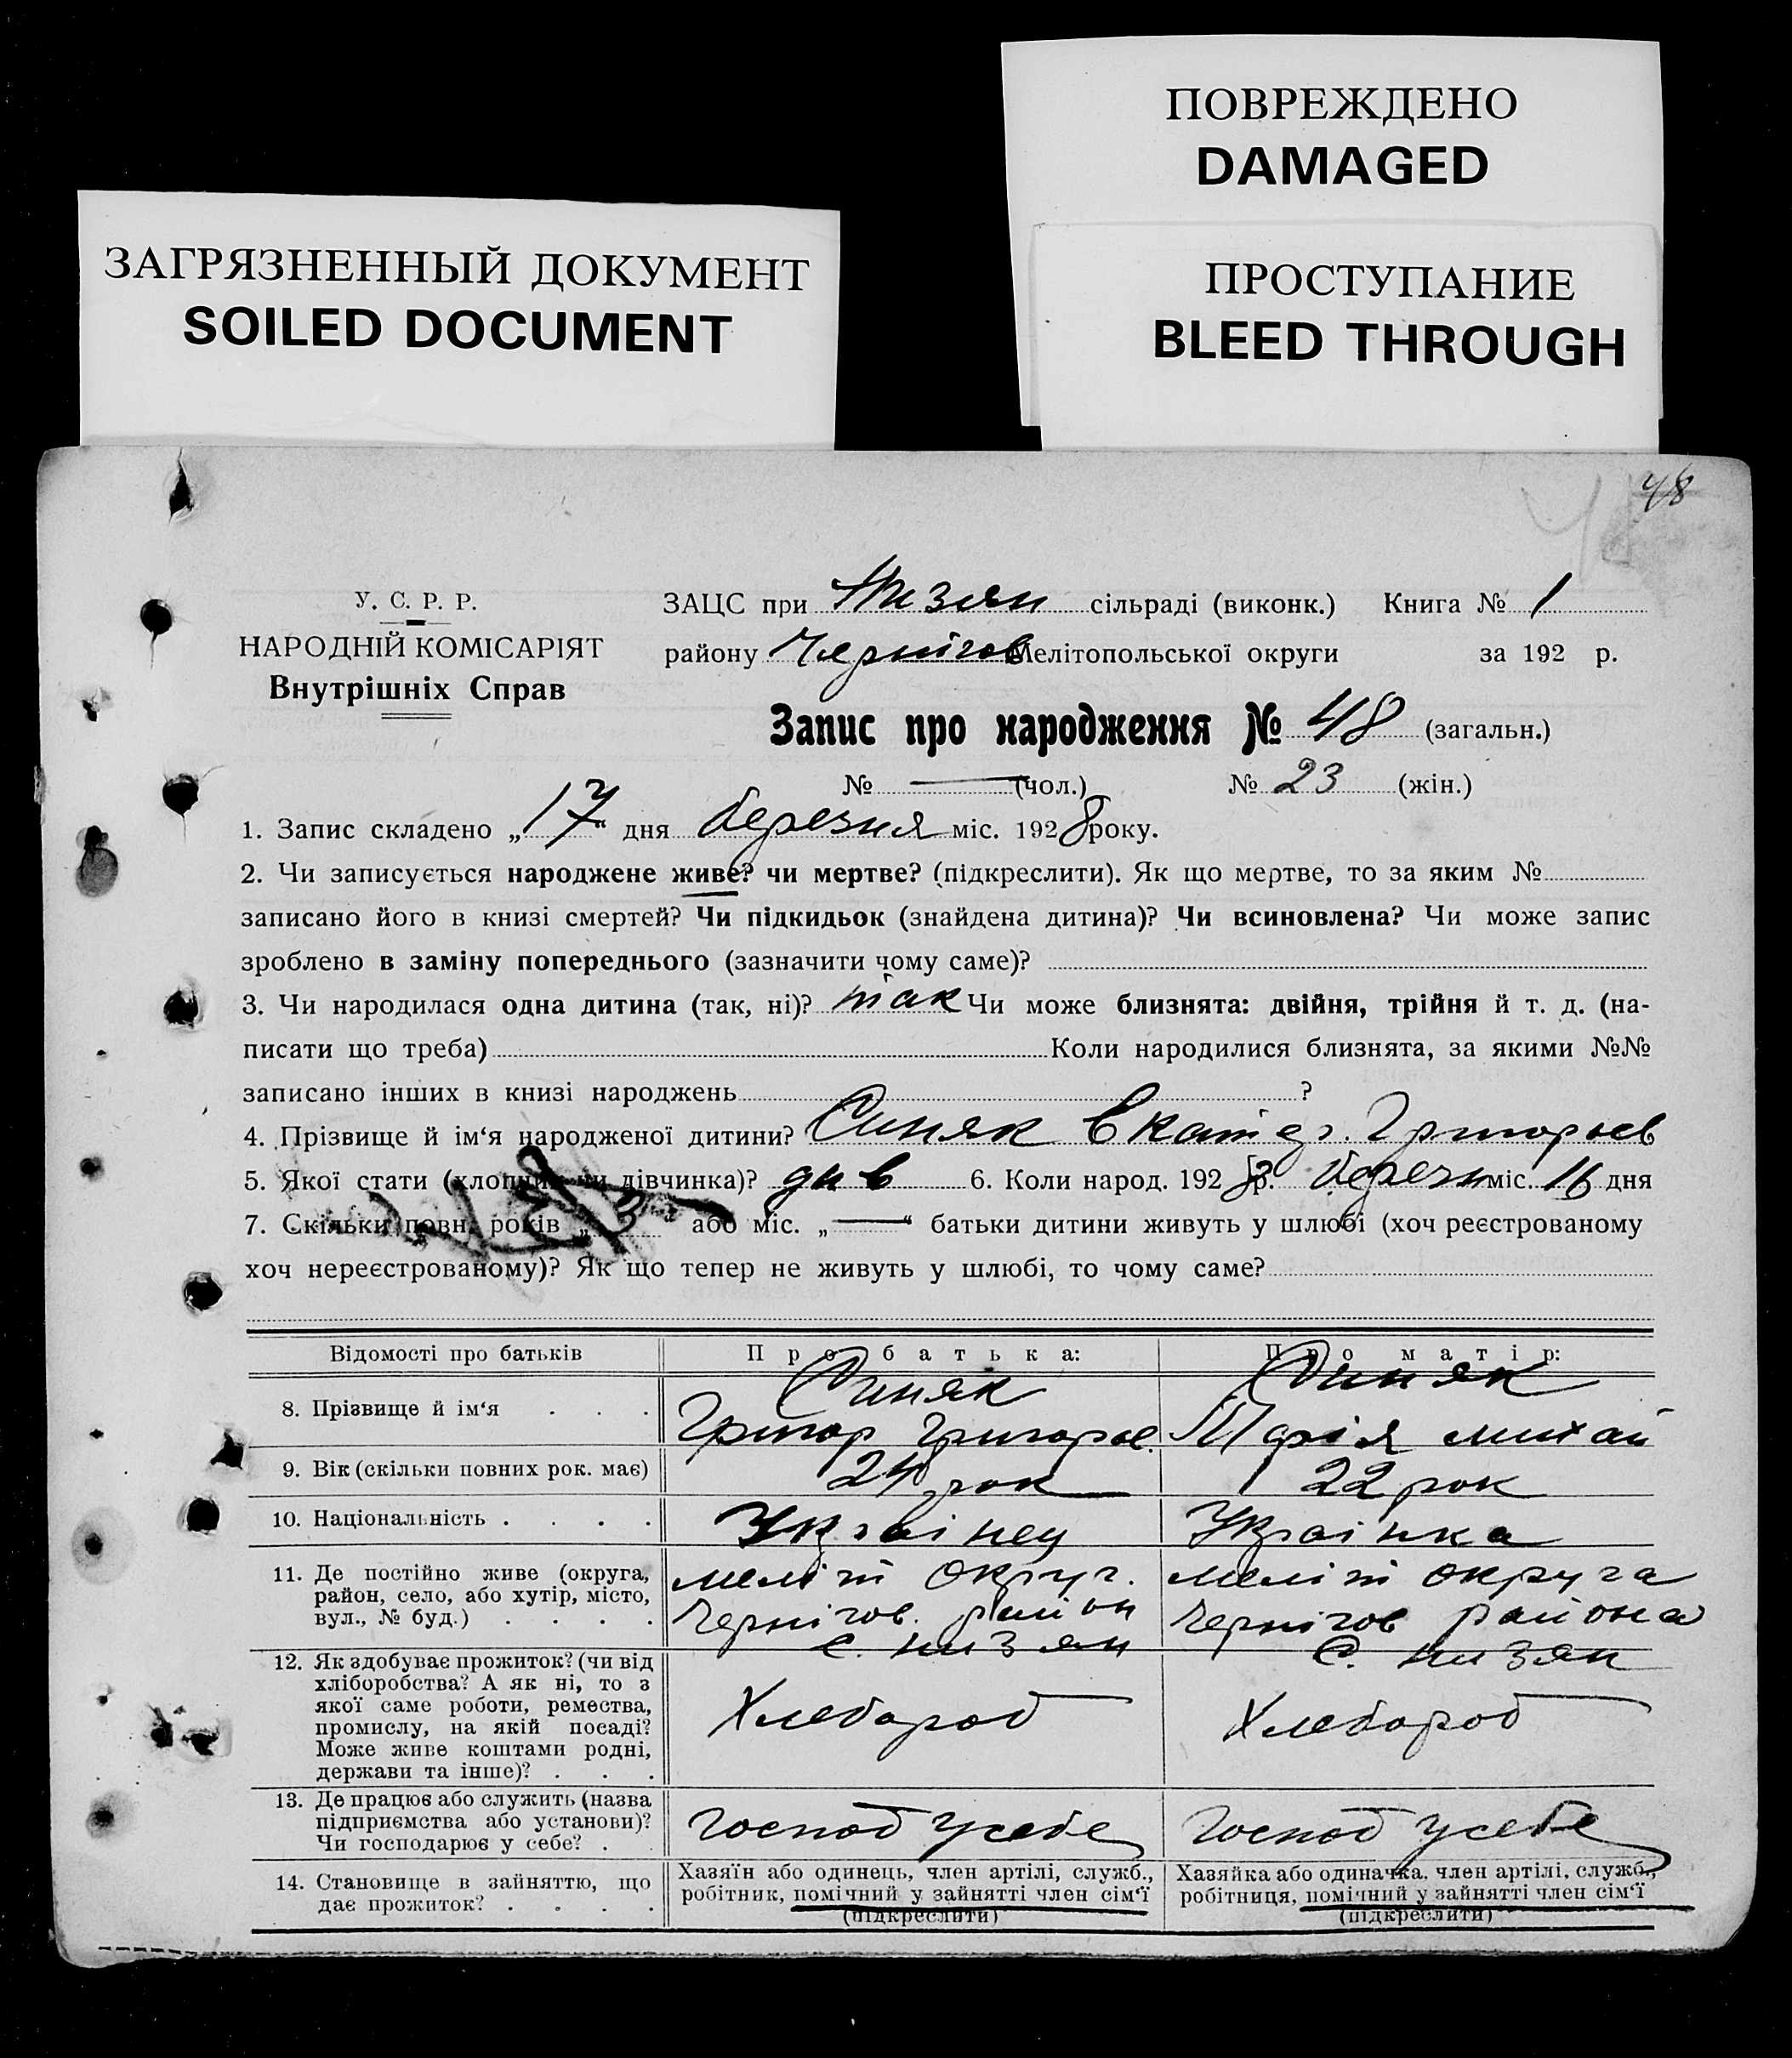 ПОВРЕЖДЕНО
DAMAGED
ЗАГРЯЗНЕННЫЙ ДОКУМЕНТ
SOILED DOCUMENT
ПРОСТУПАНИЕ
BLEED THROUGH
48
У. С. Р. Р.
НАРОДНІЙ КОМІСАРІЯТ
Внутрішніх Справ
ЗАЦС при Низян сільраді (виконк.) Книга № 1
району Чернігов Мелітопольської округи за 192 р.
Запис про народження № 48 (загальн.)
№ — (чол.) № 23 (жін.)
1. Запис складено „17“ дня березня міс. 1928 року.
2. Чи записується народжене живе? чи мертве? (підкреслити). Як що мертве, то за яким №
записано його в книзі смертей? Чи підкидьок (знайдена дитина)? Чи всиновлена? Чи може запис
зроблено в заміну попереднього (зазначити чому саме)?
3. Чи народилася одна дитина (так, ні)? так Чи може близнята: двійня, трійня й т. д. (на-
писати що треба) Коли народилися близнята, за якими №№
записано інших в книзі народжень ?
4. Прізвище й ім‘я народженої дитини? Синяк Екатер. Григорьев
5. Якої стати (хлопчик чи дівчинка)? див 6. Коли народ. 1928 р. березн міс. 16 дня
7. Скільки повн. років „3“ або міс. „—“ батьки дитини живуть у шлюбі (хоч реєстрованому
хоч нереєстрованому)? Як що тепер не живуть у шлюбі, то чому саме?
Відомості про батьків Про батька: Про матір:
8. Прізвище й ім‘я . . . Синяк Синяк
Григор Григорье. Марія михай
9. Вік (скільки повних рок. має) 24 рок 22 рок
10. Національність . . . . Українец Українка
11. Де постійно живе (округа, меліт округ. меліт округа
район, село, або хутір, місто, Чернігов. район Чернігов района
вул., № буд.) . . . . с. низян с. низян
12. Як здобуває прожиток? (чи від
хліборобства? А як ні, то з
якої саме роботи, ремества, Хлебороб Хлебороб
промислу, на якій посаді?
Може живе коштами родні,
держави та інше)? . . .
13. Де працює або служить (назва
підприємства або установи)? Господ усебе Господ усебе
Чи господарює у себе? . .
14. Становище в зайняттю, що Хазяїн або одинець, член артілі, служб., Хазяйка або одиначка, член артілі, служб.,
дає прожиток? . . . . робітник, помічний у зайнятті член сім‘ї робітниця, помічний у зайнятті член сім‘ї
(підкреслити) (підкреслити)